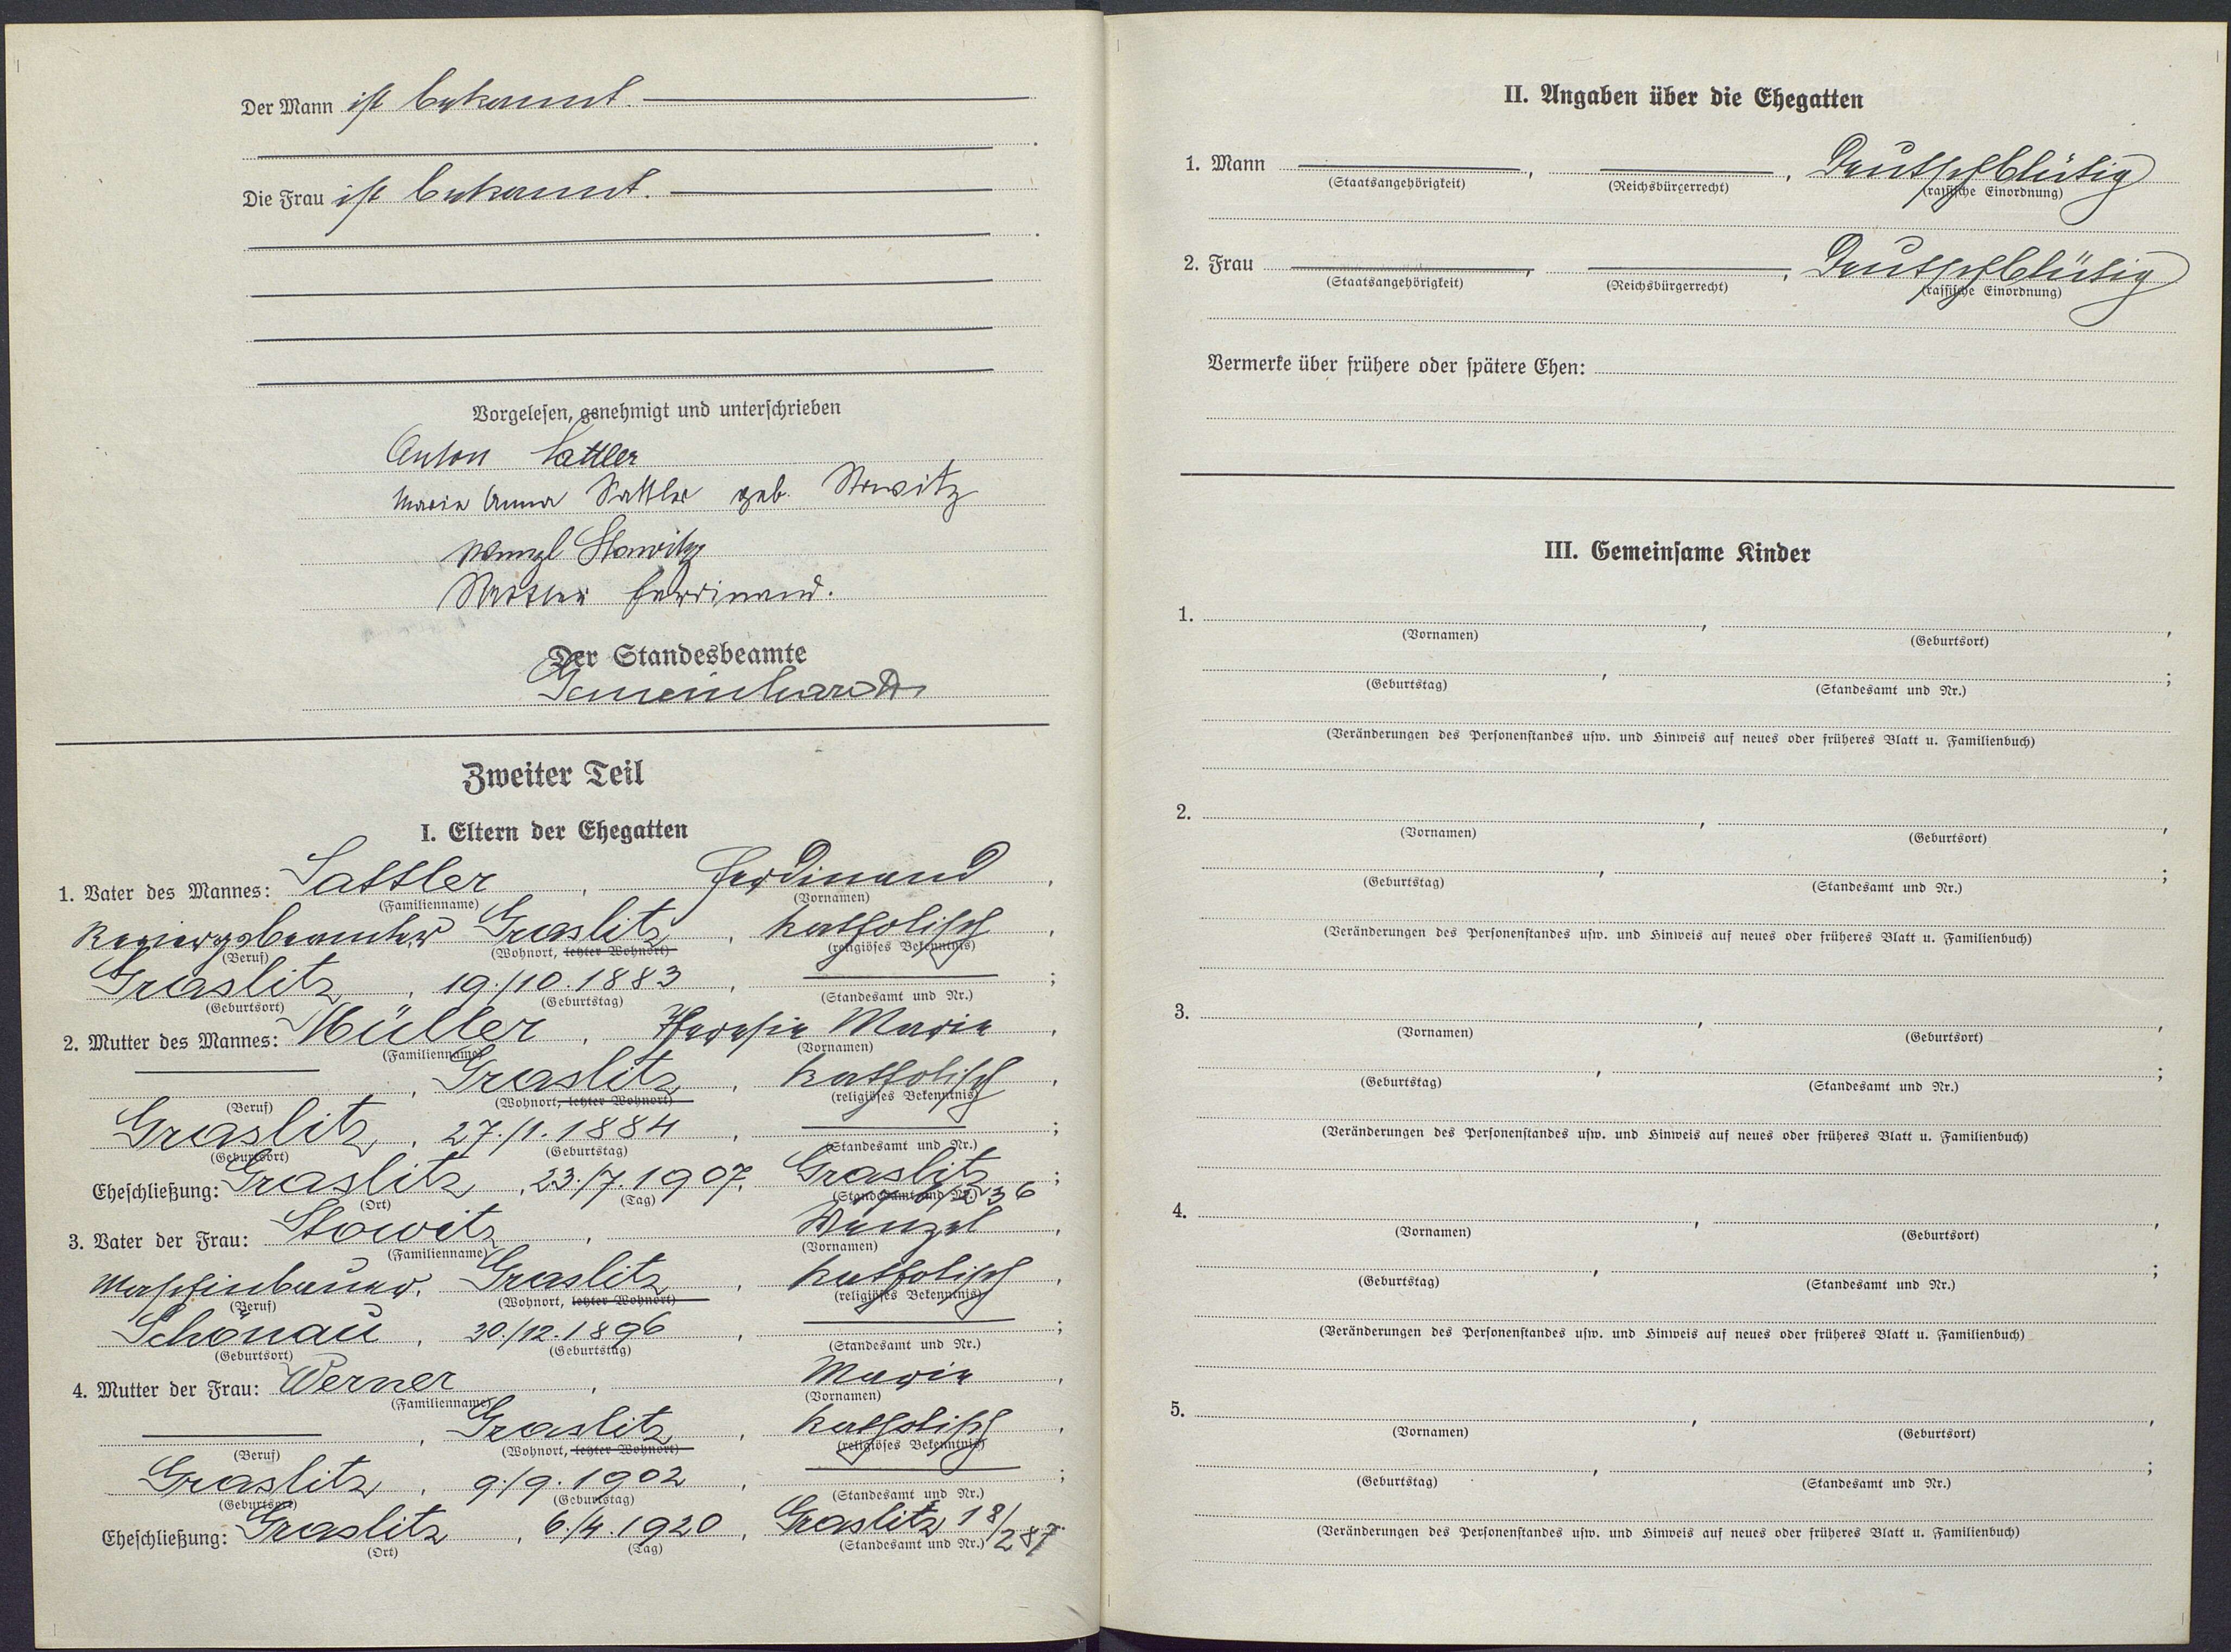 Der Mann ist bekannt.
Die Frau ist bekannt.
Vorgelesen, genehmigt und unterschrieben
Anton Sattler
Maria Anna Sattler geb. Stowitz
Wenzl Stowitz
Sattler Ferdinand.
Der Standesbeamte
Gemeinhardt
Zweiter Teil
I. Eltern der Ehegatten
1. Vater des Mannes: Sattler, Ferdinand,
(Familienname) (Vornamen)
Graslitz, katholisch,
(Beruf) (Wohnort, letzter Wohnort) (religiöses Bekenntnis)
Graslitz, 19./10.1883,
(Geburtsort) (Geburtstag) (Standesamt und Nr.)
2. Mutter des Mannes: Müller, Theresia Maria,
(Familienname) (Vornamen)
Graslitz, katholisch,
(Beruf) (Wohnort, letzter Wohnort) (religiöses Bekenntnis)
Graslitz, 27./1.1884,
(Geburtsort) (Geburtstag) (Standesamt und Nr.)
Eheschließung: Graslitz, 23./7.1907, Graslitz
(Ort) (Tag) (Standesamt und Nr.)
3. Vater der Frau: Stowitz, Wenzel,
(Familienname) (Vornamen)
Maschinbauer, Graslitz, katholisch,
(Beruf) (Wohnort, letzter Wohnort) (religiöses Bekenntnis)
Schönau, 30./12.1896,
(Geburtsort) (Geburtstag) (Standesamt und Nr.)
4. Mutter der Frau: Werner, Maria,
(Familienname) (Vornamen)
Graslitz, katholisch,
(Beruf) (Wohnort, letzter Wohnort) (religiöses Bekenntnis)
Graslitz, 9./9.1902,
(Geburtsort) (Geburtstag) (Standesamt und Nr.)
Eheschließung: Graslitz, 6./4.1920, Graslitz 18/287
(Ort) (Tag) (Standesamt und Nr.)
II. Angaben über die Ehegatten
1. Mann , , Deutschblütig
(Staatsangehörigkeit) (Reichsbürgerrecht) (rassische Einordnung)
2. Frau , , Deutschblütig
(Staatsangehörigkeit) (Reichsbürgerrecht) (rassische Einordnung)
Vermerke über frühere oder spätere Ehen:
III. Gemeinsame Kinder
1. , ,
(Vornamen) (Geburtsort)
, ;
(Geburtstag) (Standesamt und Nr.)
(Veränderungen des Personenstandes usw. und Hinweis auf neues oder früheres Blatt u. Familienbuch)
2. , ,
(Vornamen) (Geburtsort)
, ;
(Geburtstag) (Standesamt und Nr.)
(Veränderungen des Personenstandes usw. und Hinweis auf neues oder früheres Blatt u. Familienbuch)
3. , ,
(Vornamen) (Geburtsort)
, ;
(Geburtstag) (Standesamt und Nr.)
(Veränderungen des Personenstandes usw. und Hinweis auf neues oder früheres Blatt u. Familienbuch)
4. , ,
(Vornamen) (Geburtsort)
, ;
(Geburtstag) (Standesamt und Nr.)
(Veränderungen des Personenstandes usw. und Hinweis auf neues oder früheres Blatt u. Familienbuch)
5. , ,
(Vornamen) (Geburtsort)
, ;
(Geburtstag) (Standesamt und Nr.)
(Veränderungen des Personenstandes usw. und Hinweis auf neues oder früheres Blatt u. Familienbuch)